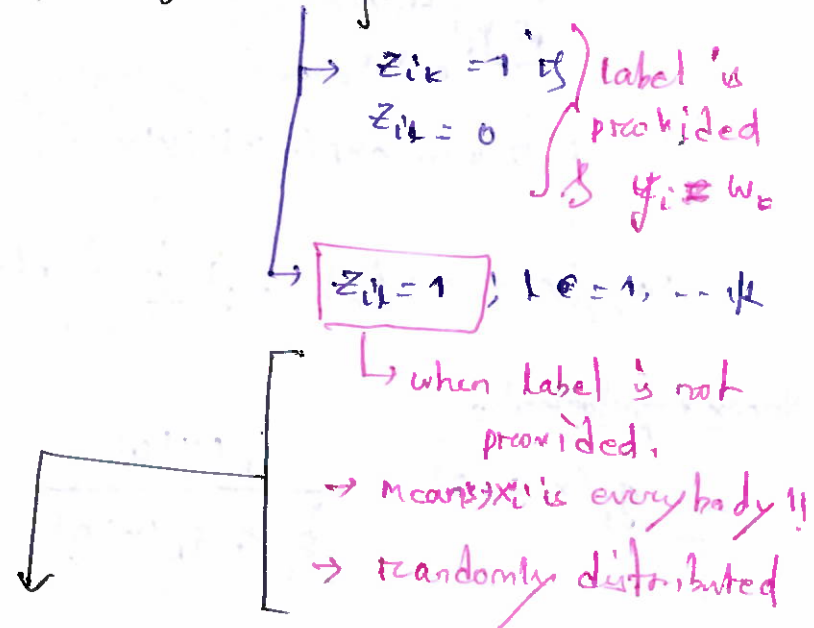 → Zik = 1 if } label is
Zil = 0 provided
& yi = wk
→ Zil = 1 ; l = 1, ... k
↳ when label is not
provided.
→ means, xi is everybody!!
→ randomly distributed